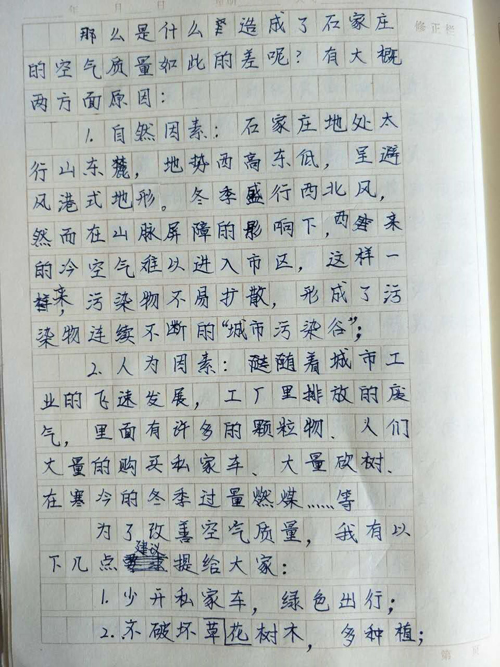 修正栏
那么是什么造成了石家庄
的空气质量如此的差呢？有大概
两方面原因：
1.自然因素：石家庄地处太
行山东麓，地势西高东低，呈避
风港式地形。冬季盛行西北风，
然而在山脉屏障的影响下，西北来
的冷空气难以进入市区，这样一
来，污染物不易扩散，形成了污
染物连续不断的“城市污染谷”；
2.人为因素：随着城市工
业的飞速发展，工厂里排放的废
气，里面有许多的颗粒物、人们
大量的购买私家车、大量砍树、
在寒冷的冬季过量燃煤……等
为了改善空气质量，我有以
下几点建议提给大家：
1.少开私家车，绿色出行；
2.不破坏草花树木，多种植；